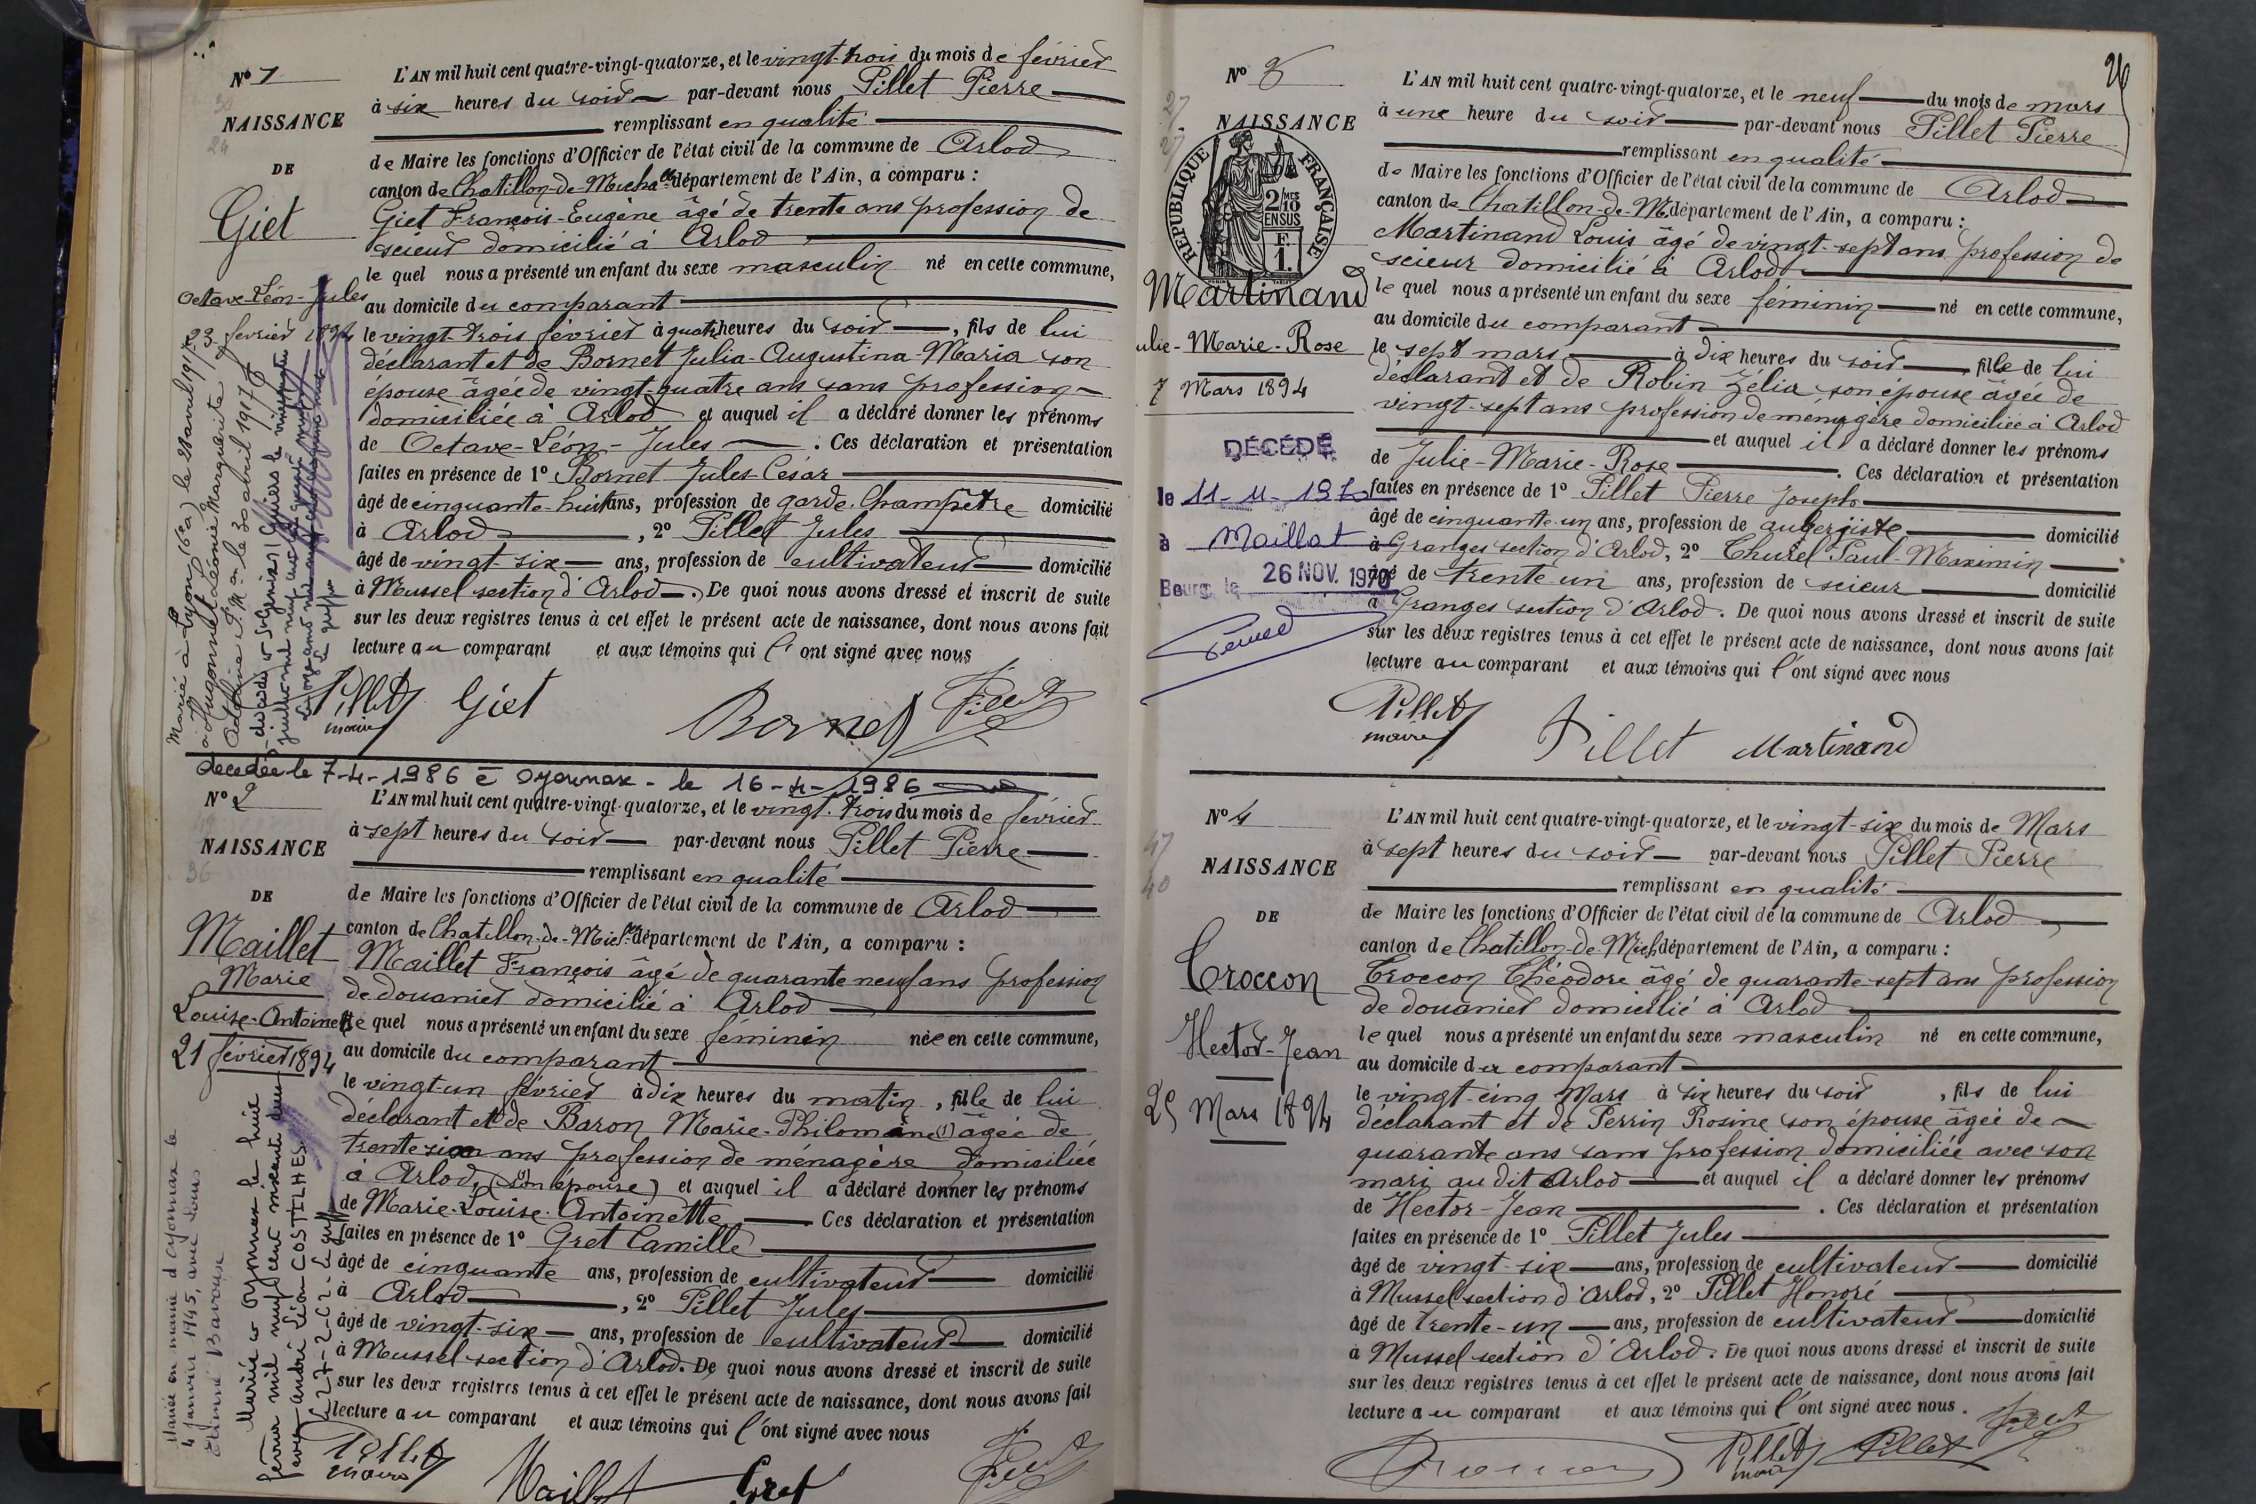 N° 1
NAISSANCE
DE
Giet
Octave-Léon-Jules
23 février 1894
L'AN mil huit cent quatre-vingt-quatorze, et le vingt-trois du mois de février
à six heures du soir par-devant nous Pillet Pierre
remplissant en qualité
de Maire les fonctions d'Officier de l'état civil de la commune de Arlod
canton de Chatillon-de-Mich^lle département de l'Ain, a comparu :
Giet François-Eugène âgé de trente ans profession de
scieur domicilié à Arlod
le quel nous a présenté un enfant du sexe masculin né en cette commune,
au domicile du comparant
le vingt-trois février à quatre heures du soir, fils de lui
déclarant et de Bornet Julia-Augustina-Maria son
épouse âgée de vingt-quatre ans sans profession
domiciliée à Arlod et auquel il a déclaré donner les prénoms
de Octave-Léon-Jules. Ces déclaration et présentation
faites en présence de 1° Bornet Jules-César
âgé de cinquante-huit ans, profession de garde-Champêtre domicilié
à Arlod, 2° Pillet Jules
âgé de vingt-six ans, profession de cultivateur domicilié
à Mussel section d'Arlod. De quoi nous avons dressé et inscrit de suite
sur les deux registres tenus à cet effet le présent acte de naissance, dont nous avons fait
lecture au comparant et aux témoins qui l'ont signé avec nous
Pillet Giet Bornet Pillet
maire
Marié à Lyon (6e a) le 28 avril 1917
à Hugonnet Léonie Marguerite
le 30 avril 1917
décédée le 7-4-1986 à Oyonnax - le 16-4-1986
N° 2
NAISSANCE
DE
Maillet
Marie
Louise-Antoinette
21 février 1894
L'AN mil huit cent quatre-vingt-quatorze, et le vingt-trois du mois de février
à sept heures du soir par-devant nous Pillet Pierre
remplissant en qualité
de Maire les fonctions d'Officier de l'état civil de la commune de Arlod
canton de Chatillon-de-Mich^lle département de l'Ain, a comparu :
Maillet François âgé de quarante neuf ans profession
de douanier domicilié à Arlod
le quel nous a présenté un enfant du sexe féminin née en cette commune,
au domicile du comparant
le vingt-un février à dix heures du matin, fille de lui
déclarant et de Baron Marie-Philomène (1) âgée de
trente six ans profession de ménagère domiciliée
à Arlod, (1) (son épouse) et auquel il a déclaré donner les prénoms
de Marie-Louise-Antoinette. Ces déclaration et présentation
faites en présence de 1° Gret Camille
âgé de cinquante ans, profession de cultivateur domicilié
à Arlod, 2° Pillet Jules
âgé de vingt-six ans, profession de cultivateur domicilié
à Mussel section d'Arlod. De quoi nous avons dressé et inscrit de suite
sur les deux registres tenus à cet effet le présent acte de naissance, dont nous avons fait
lecture au comparant et aux témoins qui l'ont signé avec nous
Pillet Maillet Gret Pillet
maire
Mariée en mairie d'Oyonnax le
4 janvier 1945, avec Louis
Mariée à Oyonnax le huit
février mil neuf cent
avec André Léon COSTILHES
26
N° 3
27
NAISSANCE
REPUBLIQUE FRANÇAISE
2/10 MES
EN SUS
F.
1.
Martinand
Julie-Marie-Rose
7 Mars 1894
DÉCÉDÉ
le 11-11-1970
à Maillat
Bourg, le 26 NOV. 1970
L'AN mil huit cent quatre-vingt-quatorze, et le neuf du mois de mars
à une heure du soir par-devant nous Pillet Pierre
remplissant en qualité
de Maire les fonctions d'Officier de l'état civil de la commune de Arlod
canton de Chatillon-de-M. département de l'Ain, a comparu :
Martinand Louis âgé de vingt-sept ans profession de
scieur domicilié à Arlod
le quel nous a présenté un enfant du sexe féminin né en cette commune,
au domicile du comparant
le sept mars à dix heures du soir, fille de lui
déclarant et de Robin Zélia son épouse âgée de
vingt-sept ans profession de ménagère domiciliée à Arlod
et auquel il a déclaré donner les prénoms
de Julie-Marie-Rose. Ces déclaration et présentation
faites en présence de 1° Pillet Pierre Joseph
âgé de cinquante-un ans, profession de aubergiste domicilié
à Granges section d'Arlod, 2° Churel Paul-Maximin
âgé de trente un ans, profession de scieur domicilié
à Granges section d'Arlod. De quoi nous avons dressé et inscrit de suite
sur les deux registres tenus à cet effet le présent acte de naissance, dont nous avons fait
lecture au comparant et aux témoins qui l'ont signé avec nous
Pillet Pillet Martinand
maire
N° 4
47
40
NAISSANCE
DE
Croccon
Hector-Jean
25 Mars 1894
L'AN mil huit cent quatre-vingt-quatorze, et le vingt-six du mois de Mars
à sept heures du soir par-devant nous Pillet Pierre
remplissant en qualité
de Maire les fonctions d'Officier de l'état civil de la commune de Arlod
canton de Chatillon-de-Mich. département de l'Ain, a comparu :
Croccon Théodore âgé de quarante-sept ans profession
de douanier domicilié à Arlod
le quel nous a présenté un enfant du sexe masculin né en cette commune,
au domicile du comparant
le vingt-cinq Mars à six heures du soir, fils de lui
déclarant et de Perrin Rosine son épouse âgée de
quarante ans sans profession domiciliée avec son
mari au dit Arlod et auquel il a déclaré donner les prénoms
de Hector-Jean. Ces déclaration et présentation
faites en présence de 1° Pillet Jules
âgé de vingt-six ans, profession de cultivateur domicilié
à Mussel section d'Arlod, 2° Pillet Honoré
âgé de trente-un ans, profession de cultivateur domicilié
à Mussel section d'Arlod. De quoi nous avons dressé et inscrit de suite
sur les deux registres tenus à cet effet le présent acte de naissance, dont nous avons fait
lecture au comparant et aux témoins qui l'ont signé avec nous.
Pillet Pillet Pillet
maire